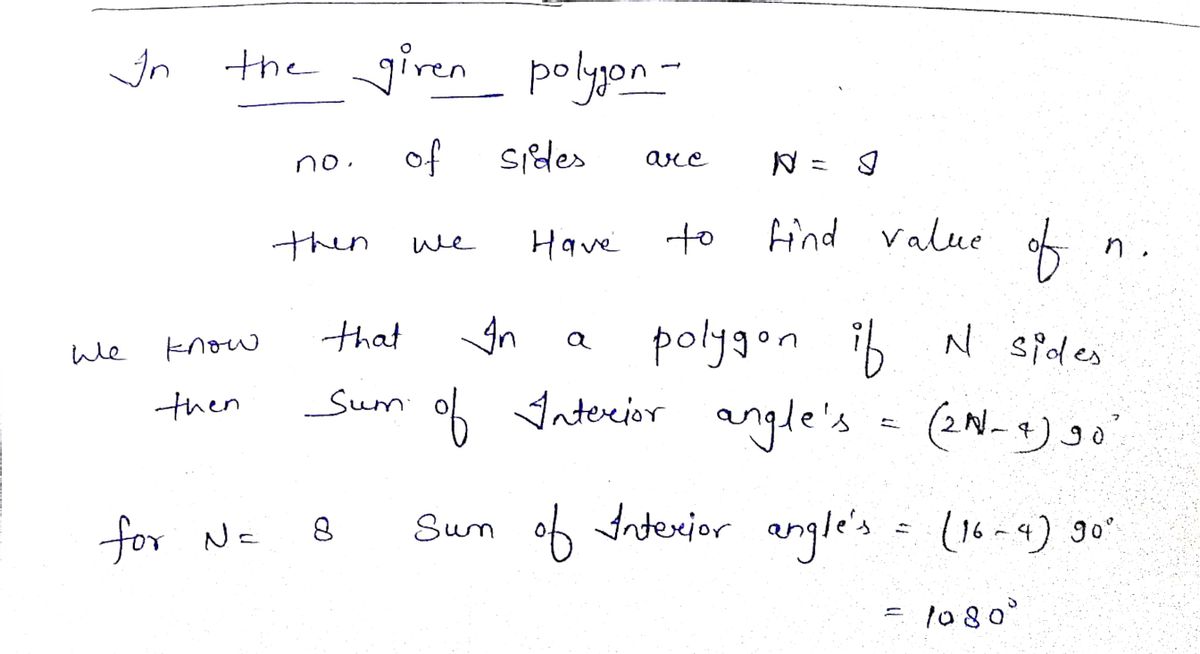 In the given polygon -
no. of sides are N = 8
then we Have to find value of n.
We know that In a polygon if N sides
then Sum of Interior angle's = (2N-4) 90°
for N = 8 Sum of Interior angle's = (16-4) 90°
= 1080°